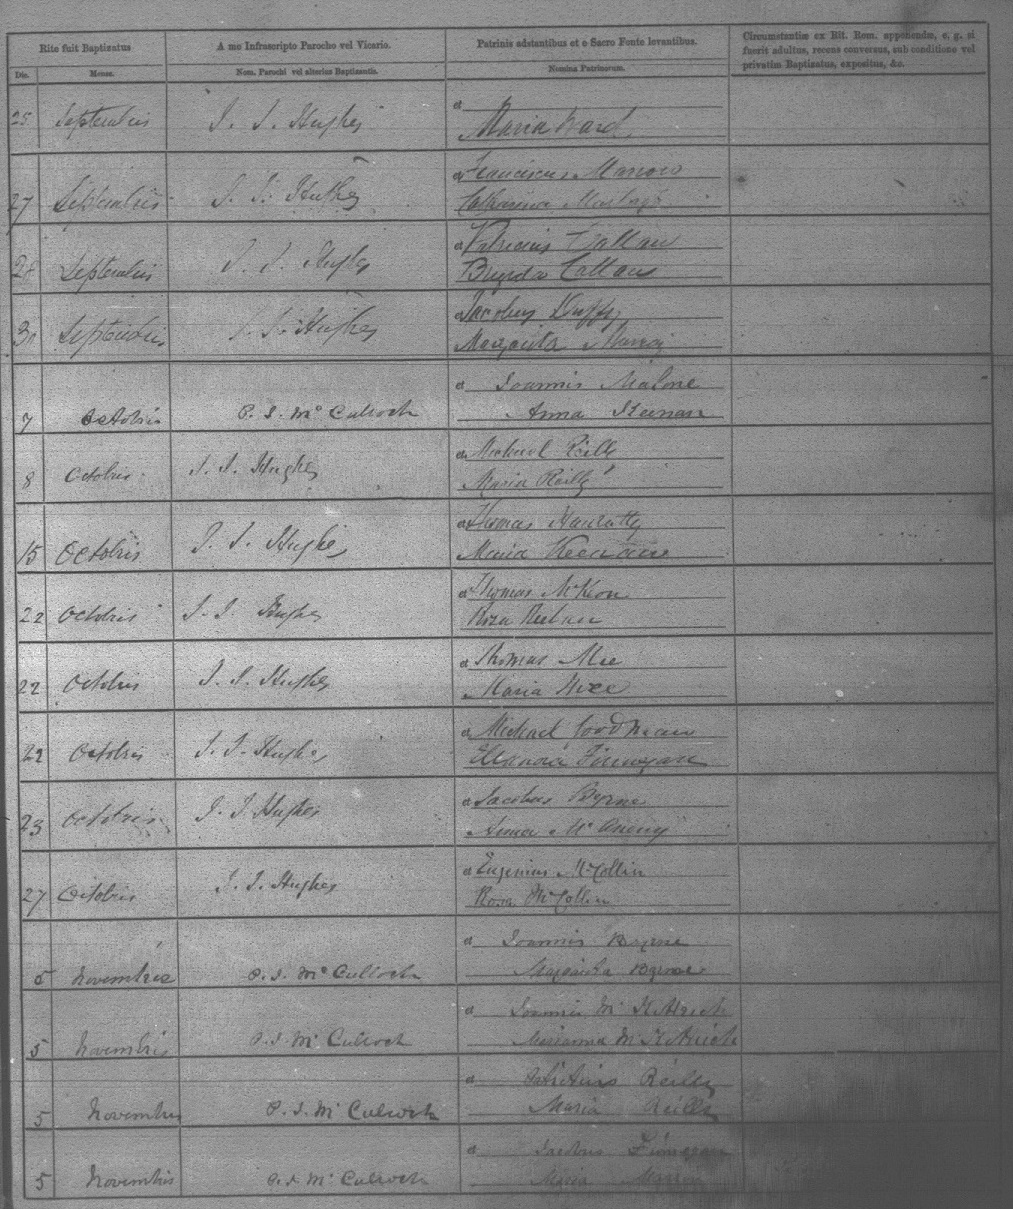 Rite fuit Baptizatus
A me Infrascripto Parocho vel Vicario.
Patrinis adstantibus et e Sacro Fonte levantibus.
Circumstantiæ ex Rit. Rom. apponendæ, e. g. si
fuerit adultus, recens conversus, sub conditione vel
privatim Baptizatus, expositus, &c.
Die.
Mense.
Nom. Parochi vel alterius Baptizantis.
Nomina Patrinorum.
25 Septembris J. J. Hughes et
Maria Ward
27 Septembris J. J. Hughes et Franciscus
Catharina
28 Septembris J. J. Hughes et Patricius Callan
Brigida Callan
30 Septembris J. J. Hughes et Jacobus Duffy
Margarita
7 Octobris P. J. McCulloch et Joannis Malone
Anna Keenan
8 Octobris J. J. Hughes et Michael Reilly
Maria Reilly
15 Octobris J. J. Hughes et Thomas Hanratty
Maria Keenan
22 Octobris J. J. Hughes et Thomas McKeon
Rosa
22 Octobris J. J. Hughes et Thomas Mee
Maria Mee
22 Octobris J. J. Hughes et Michael Goodman
Elianora Finnegan
23 Octobris J. J. Hughes et Jacobus Byrne
Anna
27 Octobris J. J. Hughes et Eugenius McCollin
Rosa McCollin
5 Novembris P. J. McCulloch et Joannis Byrne
Margarita Byrne
5 Novembris P. J. McCulloch et Joannis McKittrick
Marianna McKittrick
5 Novembris P. J. McCulloch et Patritius Reilly
Maria Reilly
5 Novembris P. J. McCulloch et Jacobus Finnegan
Maria